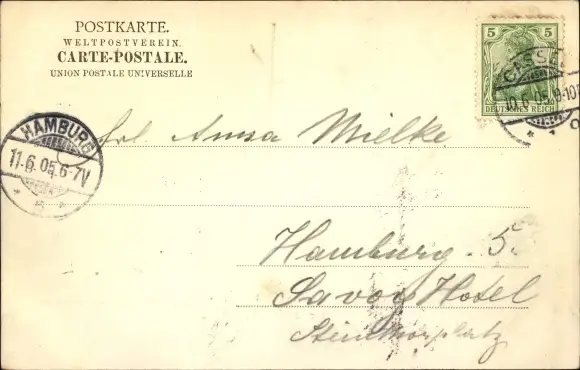 POSTKARTE.
WELTPOSTVEREIN.
CARTE-POSTALE.
UNION POSTALE UNIVERSELLE
5 5
DEUTSCHES REICH
CASSEL
10.6.05.9-10
HAMBURG
11.6.05.6-7V
Frl. Anna Mielke
Hamburg. 5.
Savoy Hotel
Steinthorplatz